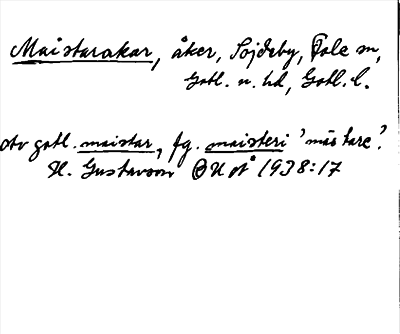 Maistarakar, åker, Sojdeby, Fole sn,
Gotl. n. hd, Gotl. l.
av gotl. maistar, fg. maisteri 'mästare'.
H. Gustavson OUÅ 1938:17